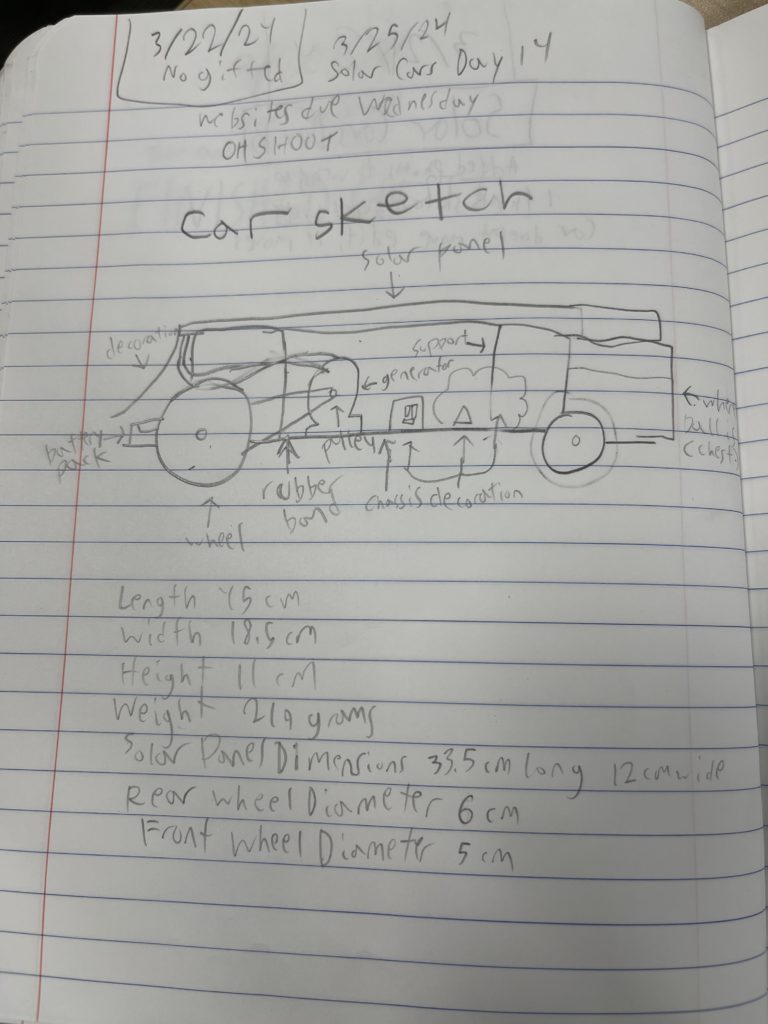 3/22/24
No gifted
3/25/24
Solar Cars Day 14
websites due Wednesday
OH SHOOT
car sketch
solar panel
decoration
support
generator
battery
pack
pulley
rubber
band
chassis
decoration
wheel
(chest)
Length 45 cm
Width 18.5 cm
Height 11 cm
Weight 219 grams
Solar Panel Dimensions 33.5 cm long 12 cm wide
Rear wheel Diameter 6 cm
Front wheel Diameter 5 cm